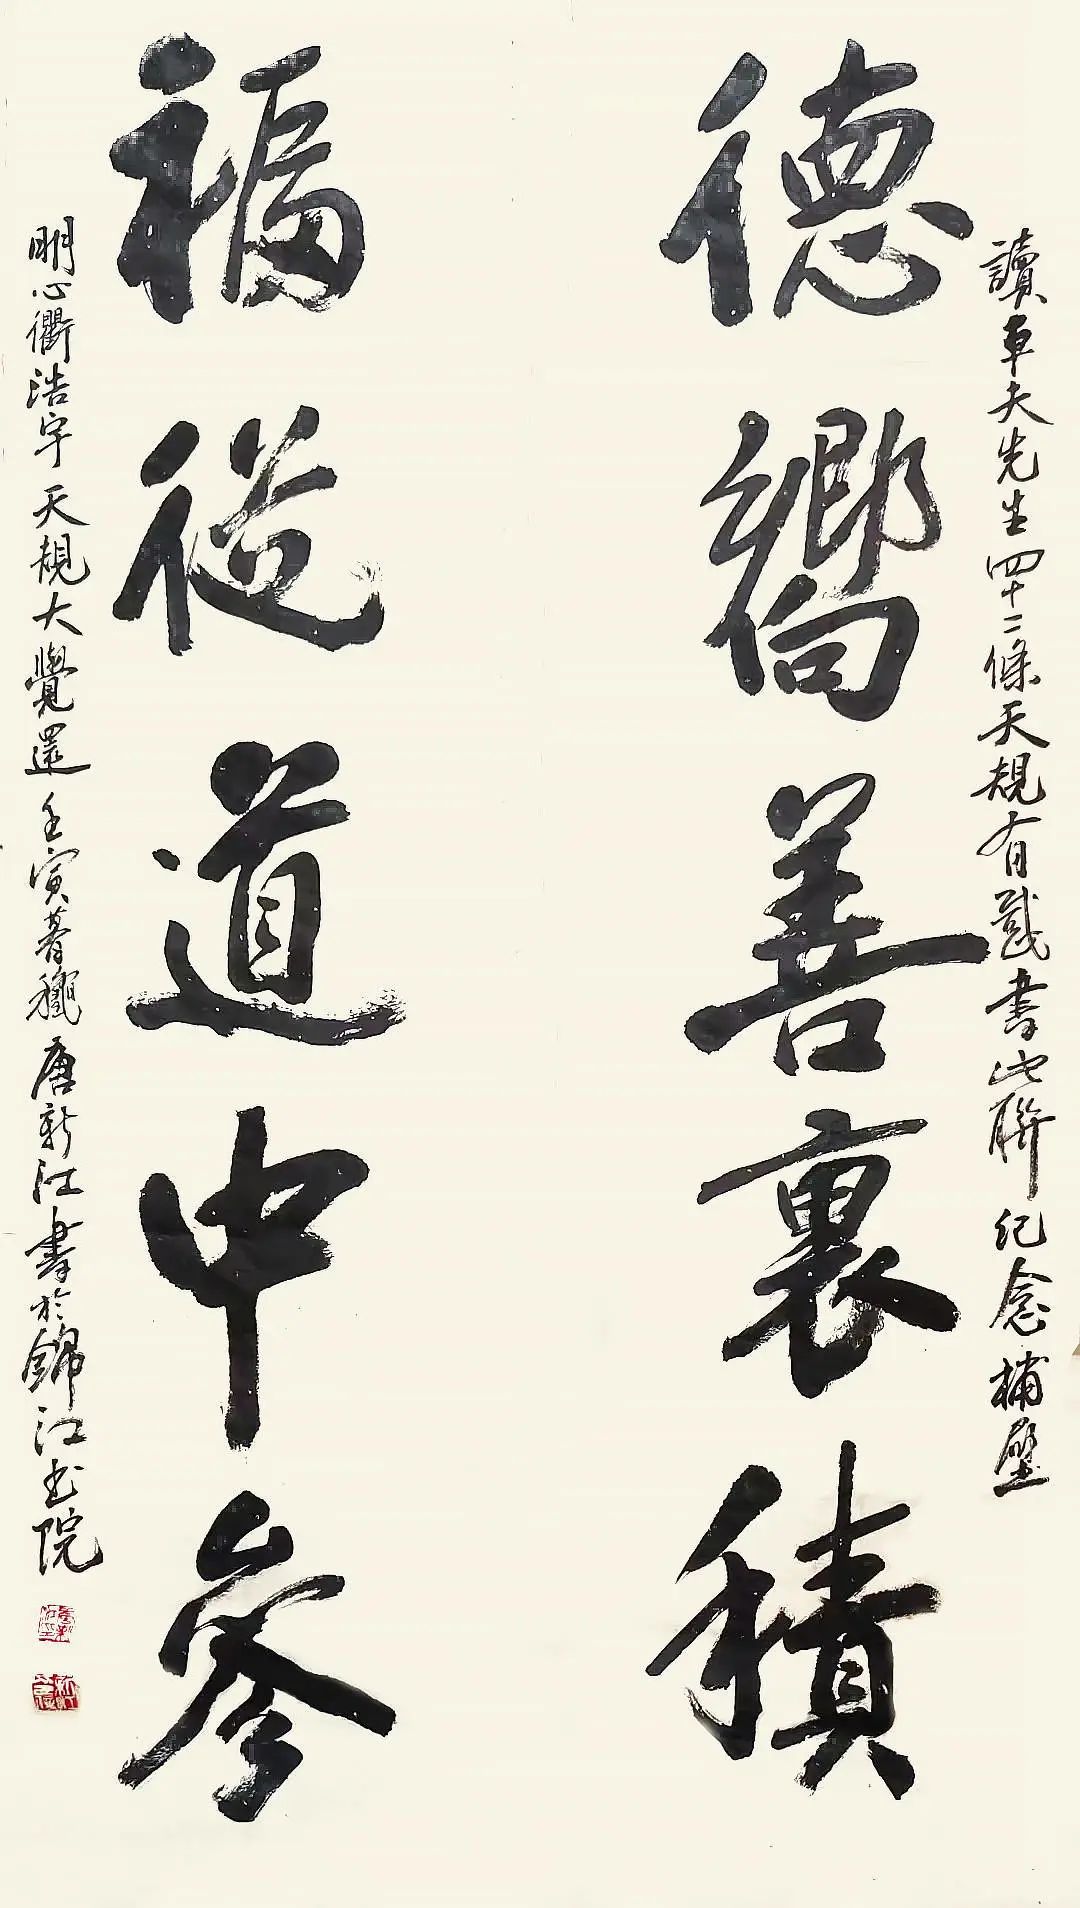 讀車夫先生四十二條天規有感書此聯紀念補壁
德嚮善裏積
福從道中參
明心衢浩宇天規大覺還壬寅暮穐唐新江書於錦江书院